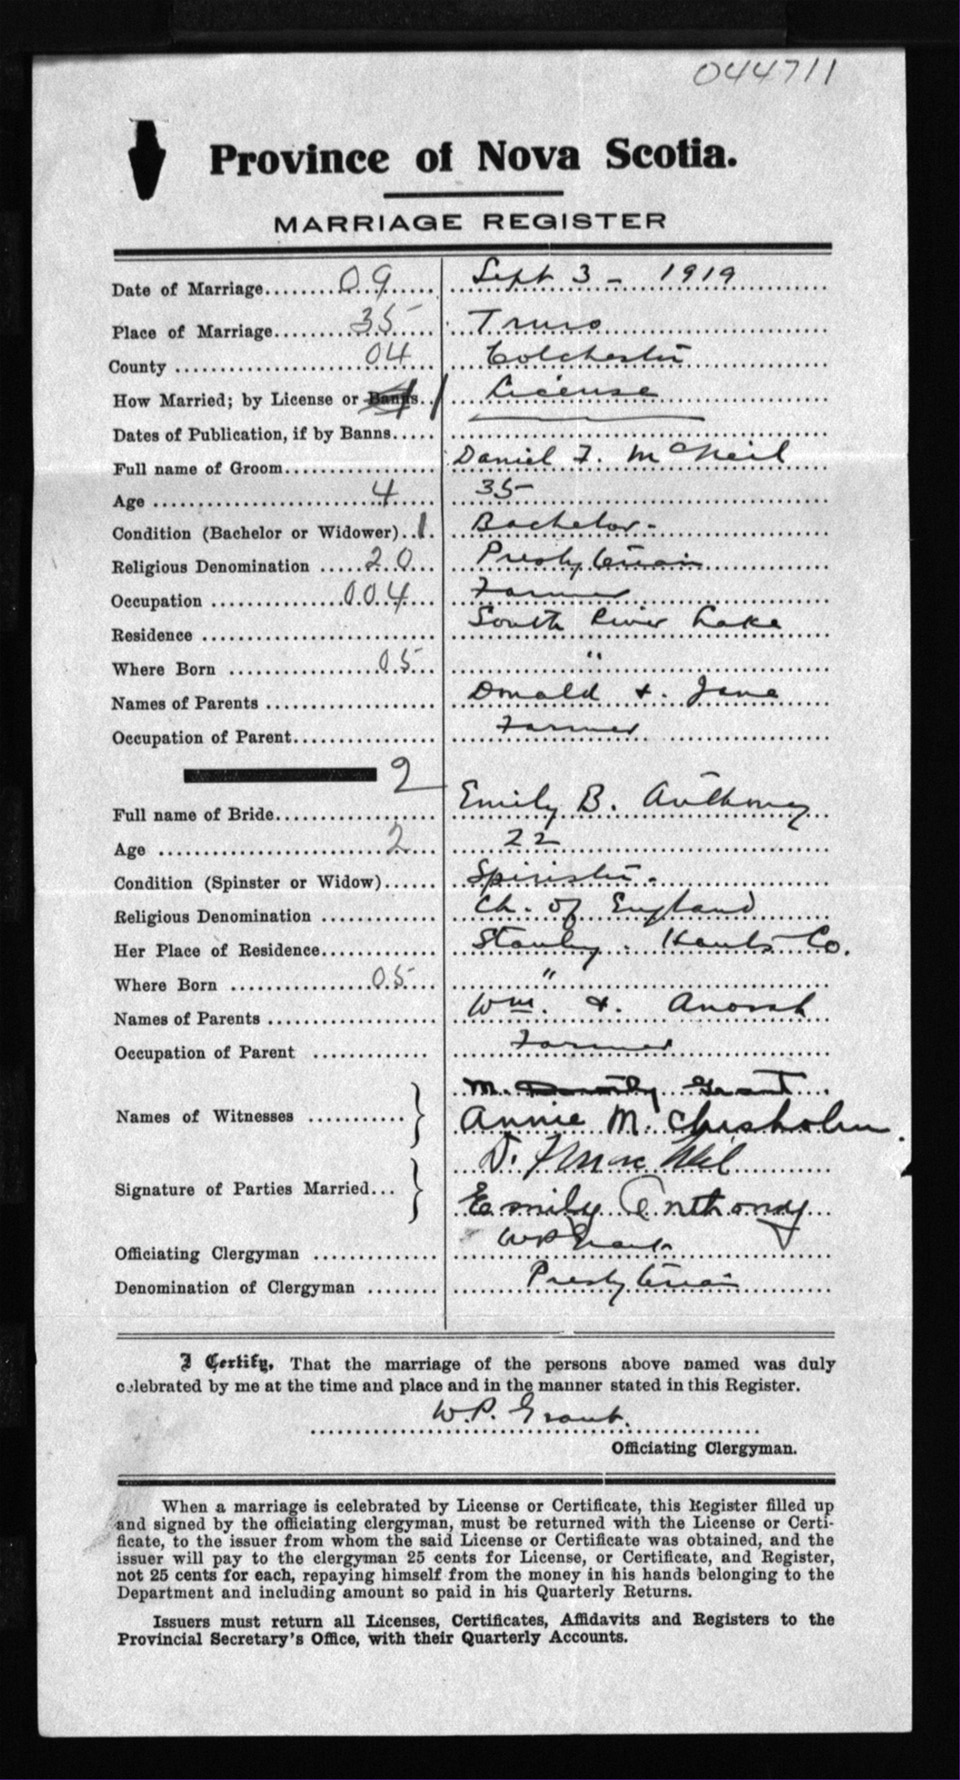 044711
Province of Nova Scotia.
MARRIAGE REGISTER
Date of Marriage........09...... Sept 3 - 1919
Place of Marriage........35...... Truro
County ........04...... Colchester
How Married; by License or Banns.. 1 License
Dates of Publication, if by Banns.....
Full name of Groom........ Daniel F. McNeil
Age ........4...... 35
Condition (Bachelor or Widower)..1. Bachelor -
Religious Denomination .....20.... Presbyterian
Occupation ........004.... Farmer
Residence ........ South River Lake
Where Born ........05.... "
Names of Parents ........ Donald & Jane
Occupation of Parent........ Farmer
2
Full name of Bride........ Emily B. Anthony
Age ........2.... 22
Condition (Spinster or Widow)...... Spinster.
Religious Denomination ........ Ch. of England
Her Place of Residence........ Stanley. Hants Co.
Where Born ........05.... "
Names of Parents ........ Wm. &
Occupation of Parent ........ Farmer
M. Dorothy Grant
Names of Witnesses ........ Annie M. Chisholm.
D. F. MacNeil
Signature of Parties Married... Emily Anthony
Officiating Clergyman ........ W P Grant
Denomination of Clergyman ........ Presbyterian
I Certify, That the marriage of the persons above named was duly
celebrated by me at the time and place and in the manner stated in this Register.
W. P. Grant.
Officiating Clergyman.
When a marriage is celebrated by License or Certificate, this Register filled up
and signed by the officiating clergyman, must be returned with the License or Certi-
ficate, to the issuer from whom the said License or Certificate was obtained, and the
issuer will pay to the clergyman 25 cents for License, or Certificate, and Register,
not 25 cents for each, repaying himself from the money in his hands belonging to the
Department and including amount so paid in his Quarterly Returns.
Issuers must return all Licenses, Certificates, Affidavits and Registers to the
Provincial Secretary's Office, with their Quarterly Accounts.